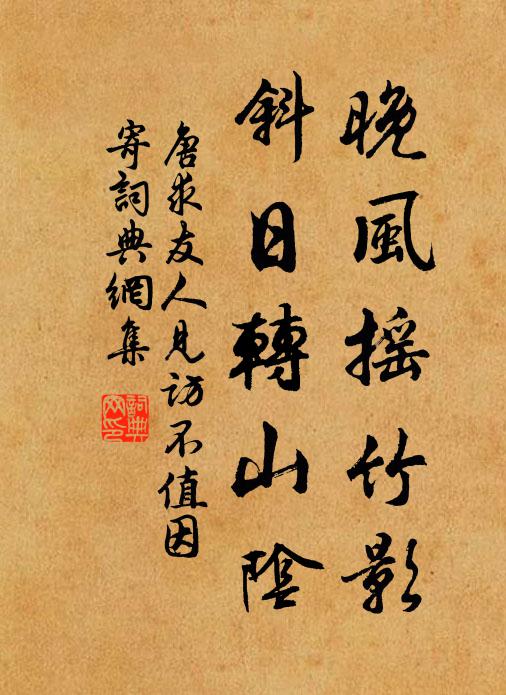 晚風搖竹影
斜日轉山陰
唐求友人見訪不值因
寄詞典網集
詞典
网印